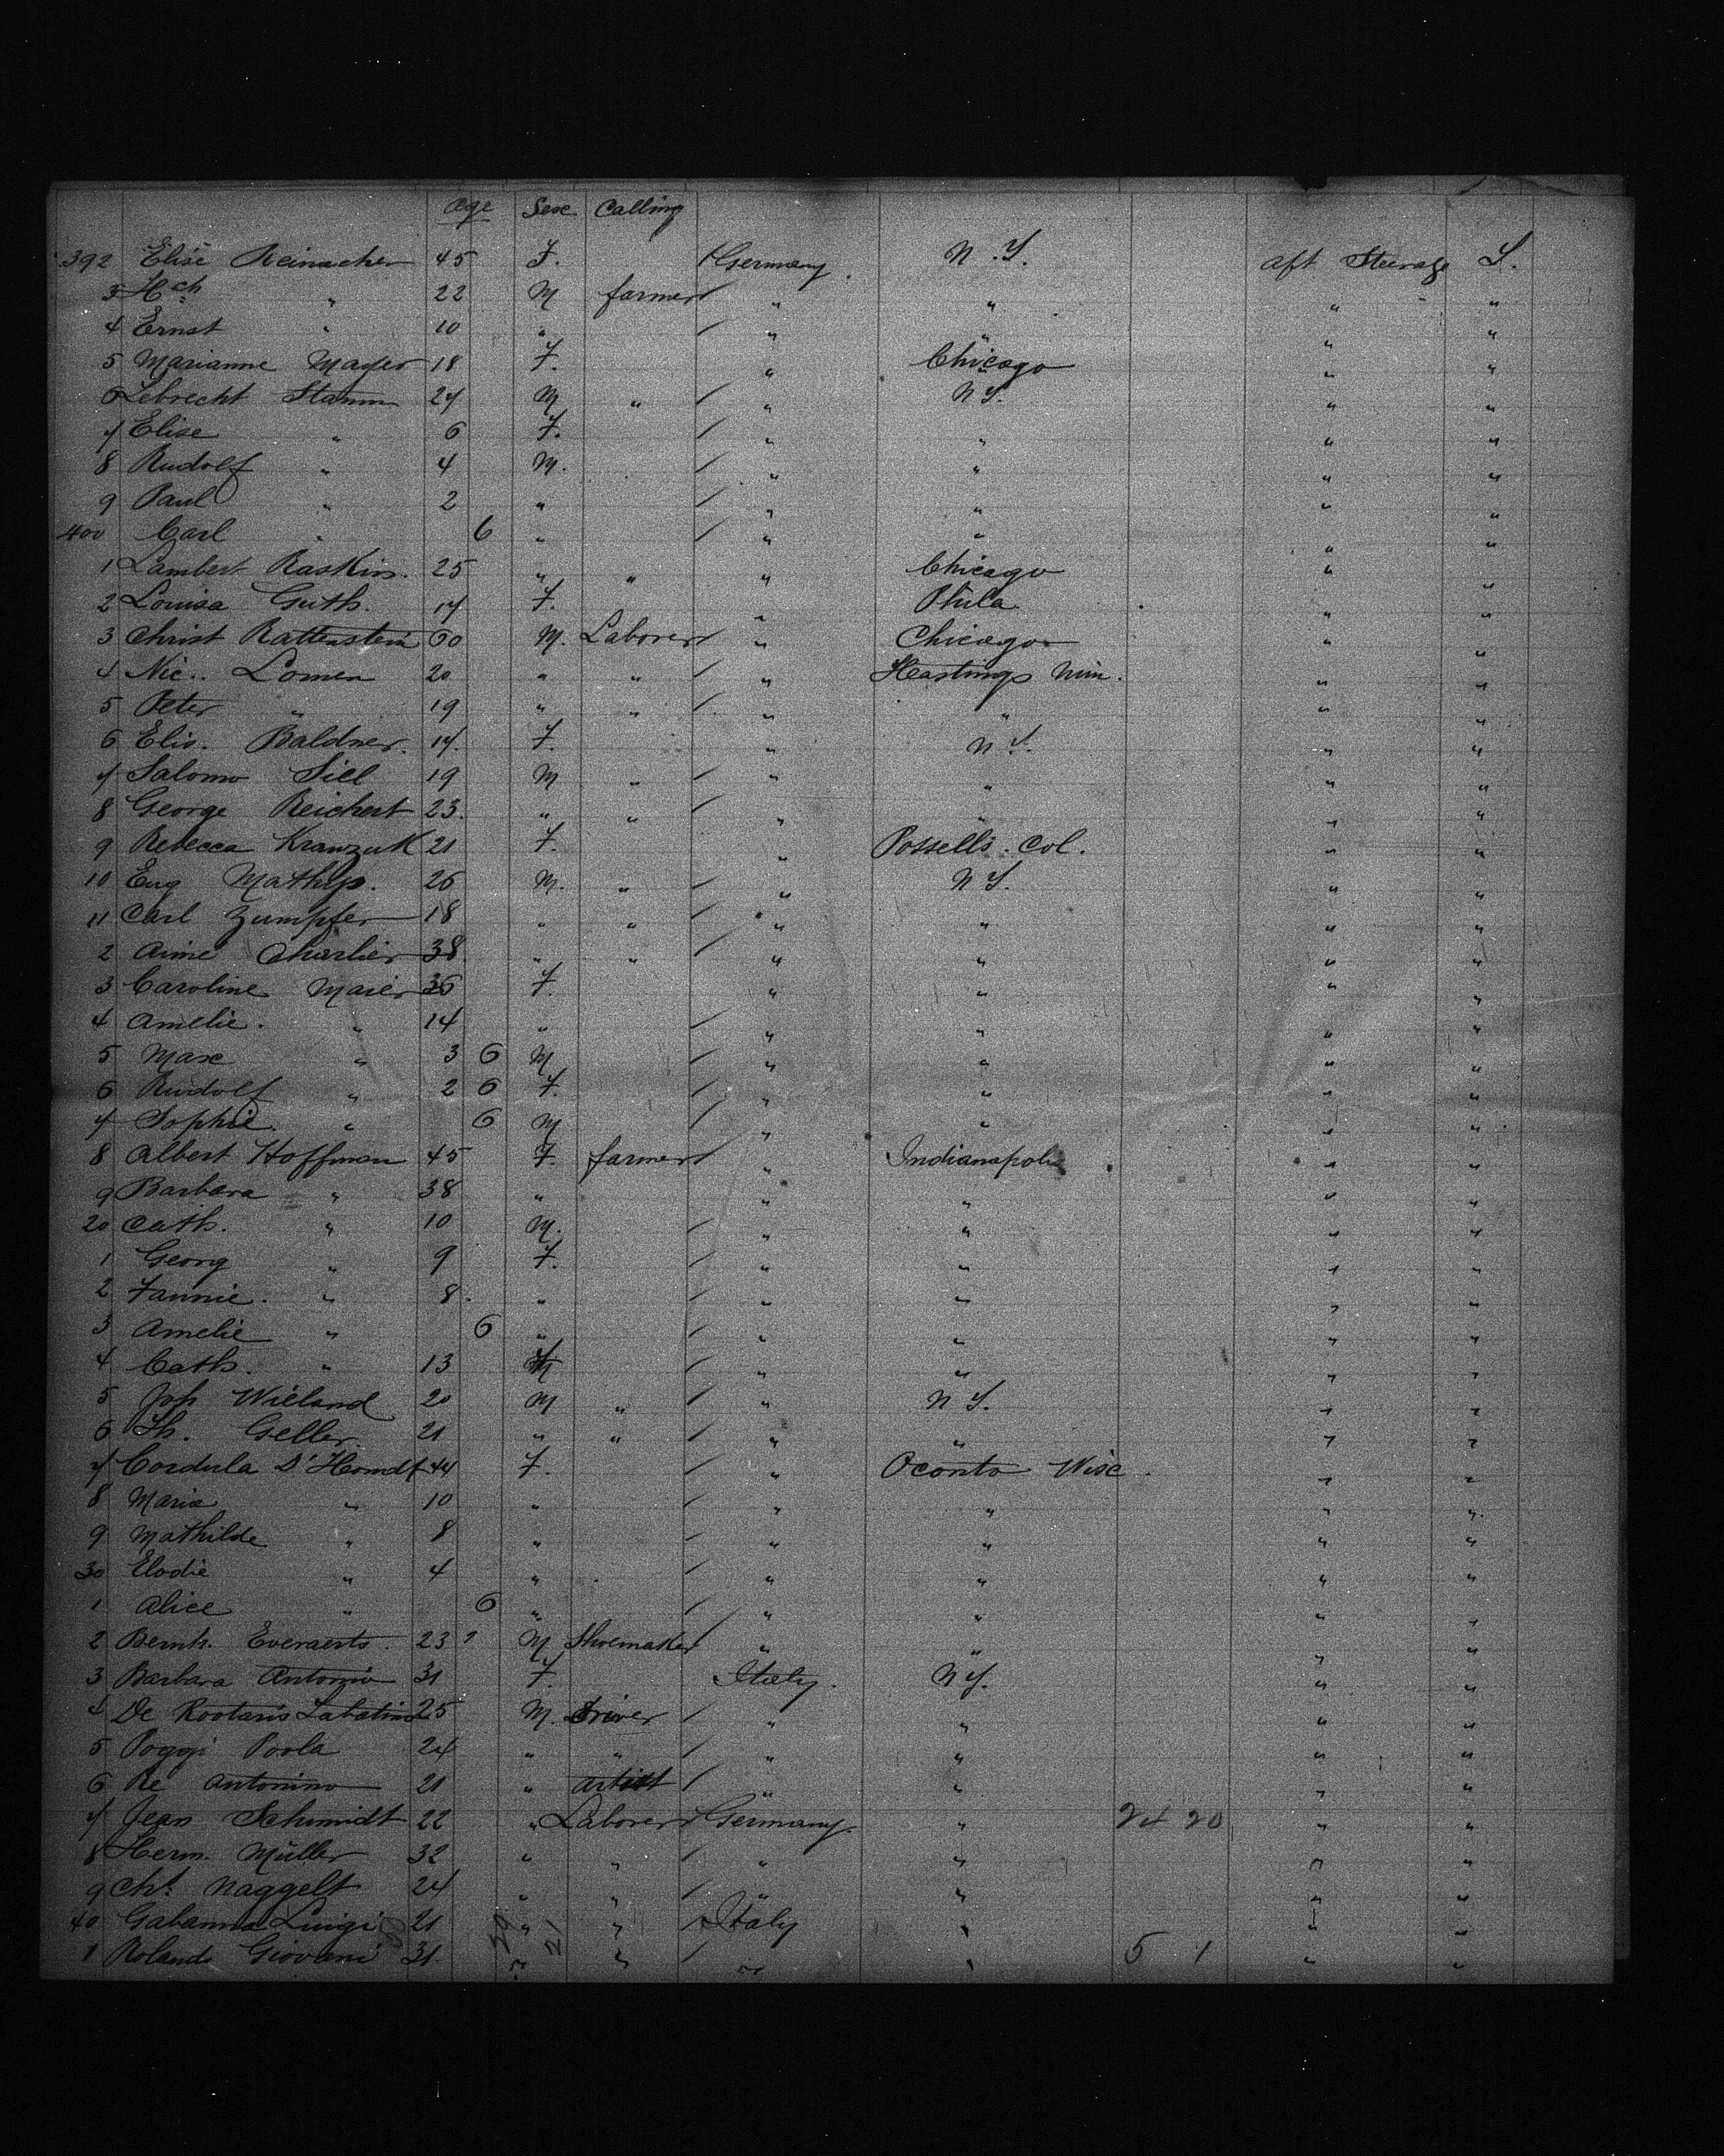 Age Sex Calling
392 Elise Reinacher 45 F. Germany N.Y. aft Steerage S.
3 Hch " 22 M farmer / " " " "
4 Ernst " 10 " / " " " "
5 Marianne Mayer 18 F. " Chicago " "
6 Lebrecht Stamm 24 M " / " N.Y. " "
7 Elise " 6 F. / " " " "
8 Rudolf " 4 M. / " " " "
9 Paul " 2 " / " " " "
400 Carl " 6 " / " " " "
1 Lambert Raskin. 25 " " " Chicago " "
2 Louisa Guth. 17 F. " Phila. " "
3 Christ Rattenstein 60 M. Laborer / " Chicago " "
4 Nic.. Lomen 20 " " / " Heastings Min. " "
5 Peter " 19 " " / " " " "
6 Elis. Baldner. 17. F. " N.Y. " "
7 Salomo Siel 19 M " / " " " "
8 George Reichert 23. " " / " " " "
9 Rebecca Krawzuk 21 F. " Possells. Col. " "
10 Eug Mathys. 26 M. " / " N.Y. " "
11 Carl Zumpfer 18 " " / " " " "
2 Aime Charlier 38. " " / " " " "
3 Caroline Maier 36 F. " " " "
4 Amelie. " 14 " / " " " "
5 Max " 3 6 M / " " " "
6 Rudolf " 2 6 F. / " " " "
7 Sophie. " 6 M / " " " "
8 Albert Hoffman 45 F. farmer / " Indianapolis " "
9 Barbara " 38 " " " " "
20 Cath. " 10 M. / " " " "
1 Georg " 9 F. / " " " "
2 Fannie. " 8. " / " " " "
3 Amelie " 6 " / " " " "
4 Cath. " 13 / " " " "
5 Jos Wieland 20 M " / " N.Y. " "
6 Th. Geller. 21 " " / " " " "
7 Cordula D'Homdt 44 F. " Oconto Wisc. " "
8 Maria " 10 " / " " " "
9 Mathilde " 8 " / " " " "
30 Elodie " 4 " / " " " "
1 Alice " 6 " / " " " "
2 Bernh. Everaerts. 23 M Shoemaker / " " " "
3 Barbara Antonio 31 F. Italy. N.Y. " "
4 De Rootaris 25 M. Driver / " " " "
5 Poggi Poola 24 " " / " " " "
6 Re Antonino 21 " artist / " " " "
7 Jean Schmidt 22 " Laborer / Germany. " 24 20 " "
8 Herm. Müller 32 " " / " " " "
9 Chr. Naggelt 24 " " / " " " "
40 Gabanna Luigi 21 " " / Italy " " "
1 Rolando Giovani 31. " " / " " 5 1 " "